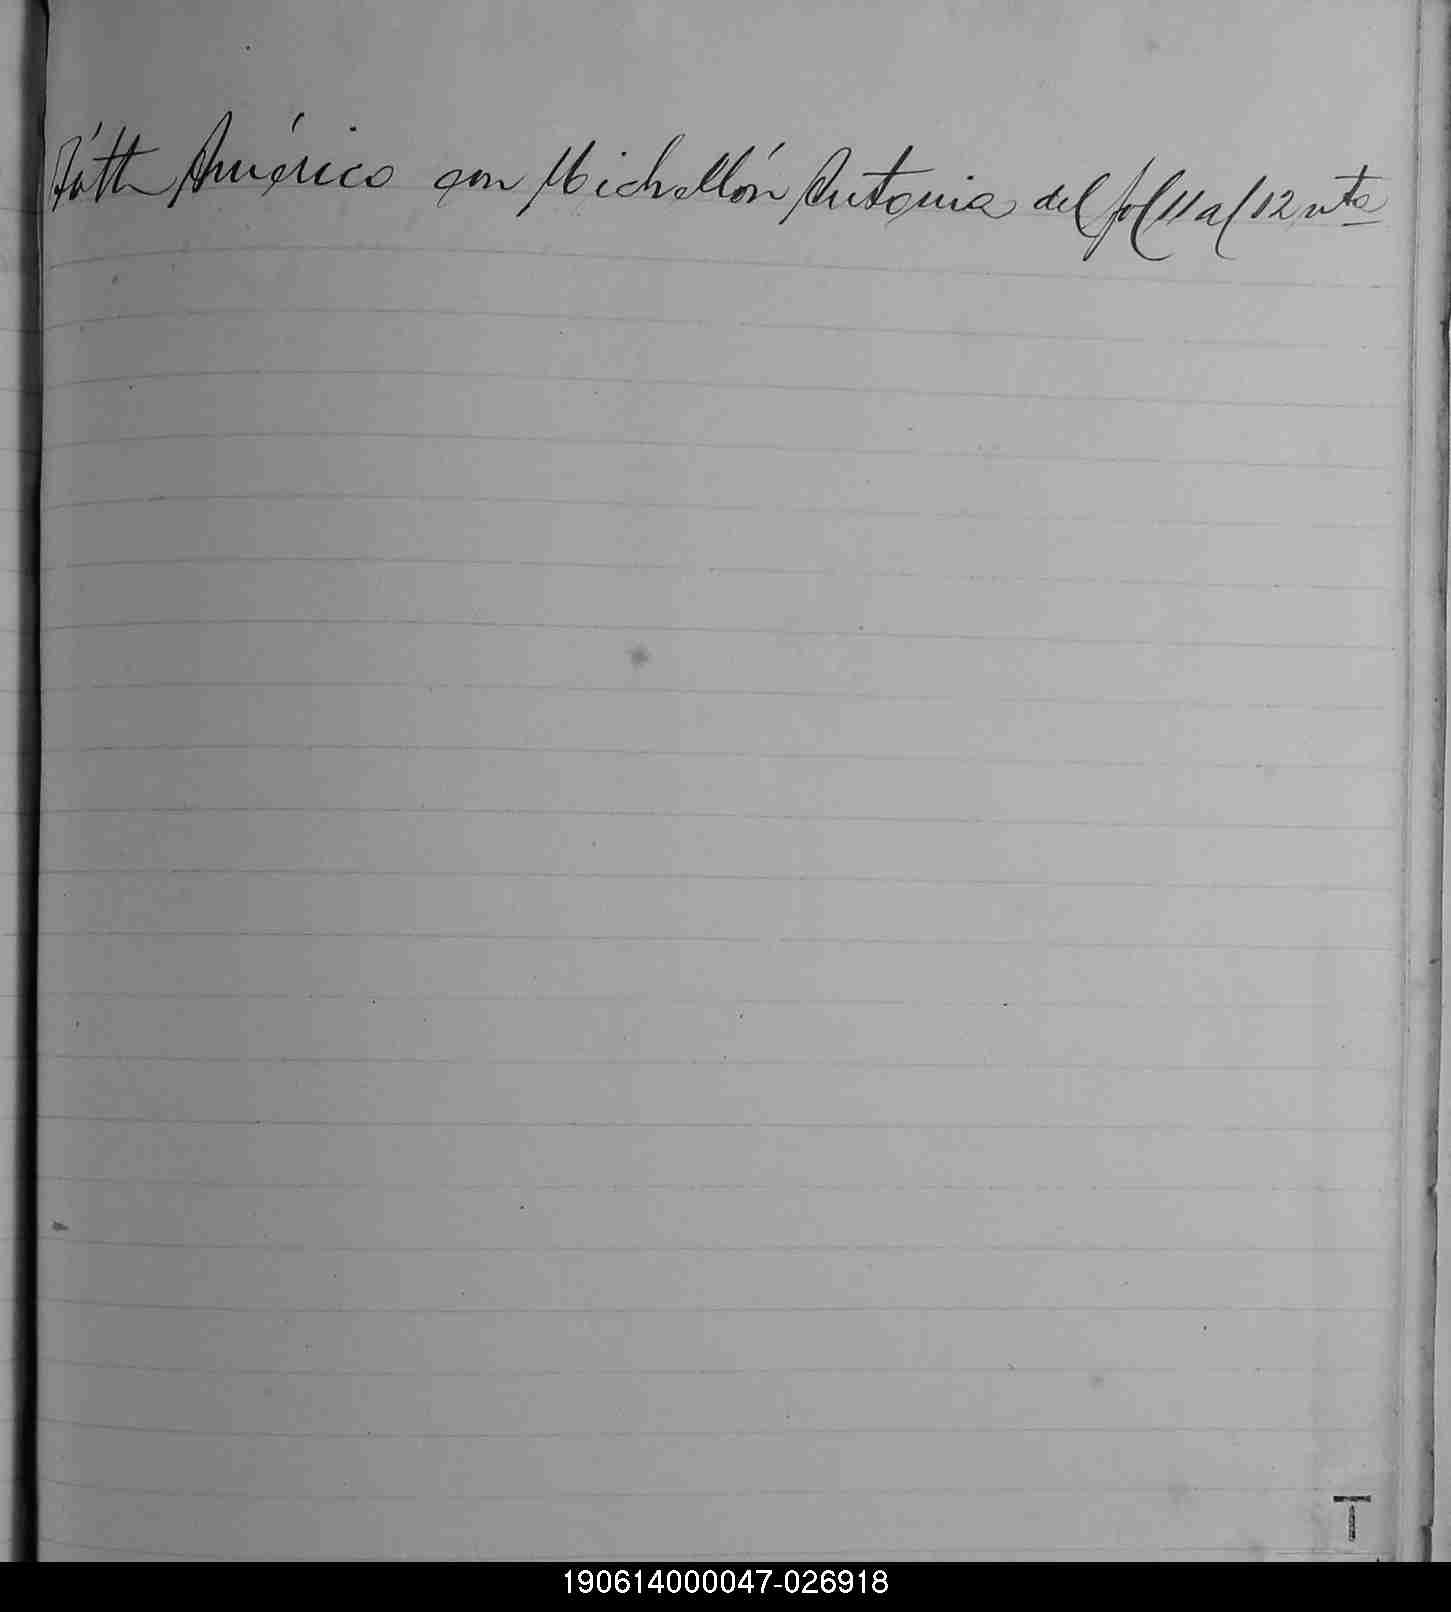 Tóth Américo con Michellón Antonia del fol 11 al 12 vta
T
190614000047-026918